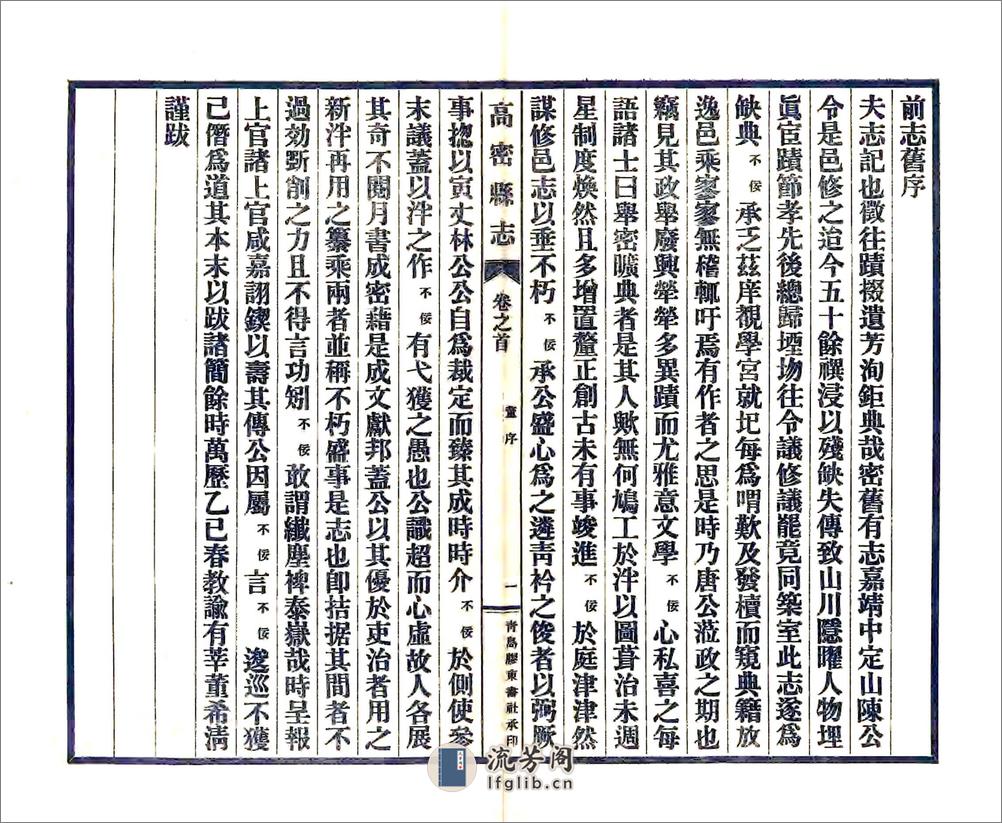 前志舊序
夫志記也徵往蹟掇遺芳洵鉅典哉密舊有志嘉靖中定山陳公
令是邑修之迨今五十餘禩浸以殘缺失傳致山川隱曜人物埋
眞宦蹟節孝先後總歸堙圽往令議修議罷竟同築室此志遂爲
缺典不佞承乏茲庠視學宮就圮每爲喟歎及發櫝而窺典籍放
逸邑乘寥寥無稽輒吁焉有作者之思是時乃唐公蒞政之期也
竊見其政舉廢興犖犖多異蹟而尤雅意文學不佞心私喜之每
語諸士曰舉密曠典者是其人歟無何鳩工於泮以圖葺治未週
星制度煥然且多增置釐正創古未有事竣進不佞於庭津津然
謀修邑志以垂不朽不佞承公盛心爲之遴靑衿之俊者以弼厥
高密縣志
卷之首
董序
一
靑島膠東書社承印
事揔以寅丈林公公自爲裁定而臻其成時時介不佞於側使參
末議蓋以泮之作不佞有弋獲之愚也公識超而心虛故人各展
其奇不閱月書成密藉是成文獻邦蓋公以其優於吏治者用之
新泮再用之纂乘兩者並稱不朽盛事是志也卽拮据其間者不
過効斲削之力且不得言功矧不佞敢謂纖塵裨泰嶽哉時呈報
上官諸上官咸嘉詡鍥以壽其傳公因屬不佞言不佞逡巡不獲
已僭爲道其本末以跋諸簡餘時萬歷乙巳春教諭有莘董希淸
謹跋
流芳阁
lfglib.cn